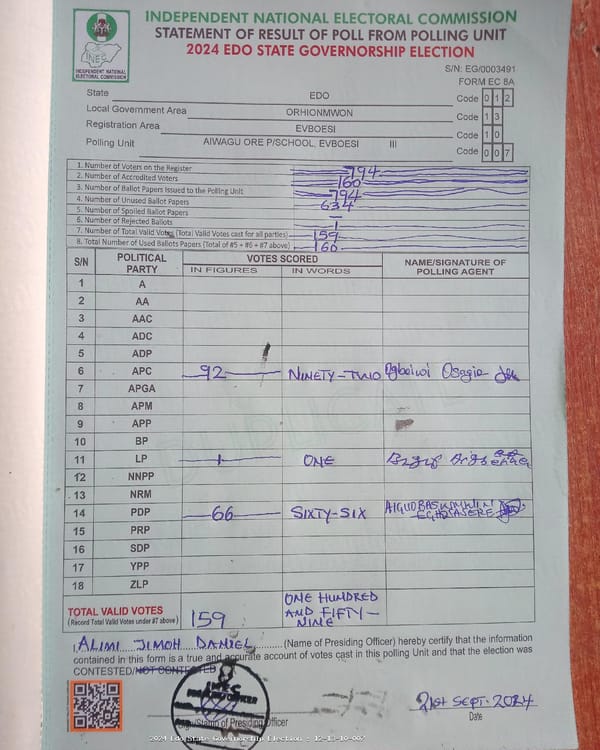 INDEPENDENT NATIONAL ELECTORAL COMMISSION
STATEMENT OF RESULT OF POLL FROM POLLING UNIT
2024 EDO STATE GOVERNORSHIP ELECTION
INEC
INDEPENDENT NATIONAL
ELECTORAL COMMISSION
S/N: EG/0003491
FORM EC 8A
State EDO Code 0 1 2
Local Government Area ORHIONMWON Code 1 3
Registration Area EVBOESI Code 1 0
Polling Unit AIWAGU ORE P/SCHOOL, EVBOESI III Code 0 0 7
1. Number of Voters on the Register 794
2. Number of Accredited Voters 160
3. Number of Ballot Papers Issued to the Polling Unit 794
4. Number of Unused Ballot Papers 634
5. Number of Spoiled Ballot Papers —
6. Number of Rejected Ballots 1
7. Number of Total Valid Votes (Total Valid Votes cast for all parties) 159
8. Total Number of Used Ballots Papers (Total of #5 + #6 + #7 above) 160
S/N POLITICAL PARTY VOTES SCORED NAME/SIGNATURE OF POLLING AGENT
IN FIGURES IN WORDS
1 A
2 AA
3 AAC
4 ADC
5 ADP
6 APC 92 NINETY-TWO Osagie
7 APGA
8 APM
9 APP
10 BP
11 LP 1 ONE
12 NNPP
13 NRM
14 PDP 66 SIXTY-SIX
15 PRP
16 SDP
17 YPP
18 ZLP
TOTAL VALID VOTES 159 ONE HUNDRED AND FIFTY-NINE
(Record Total Valid Votes under #7 above)
I, ALIMI JIMOH DANIEL (Name of Presiding Officer) hereby certify that the information
contained in this form is a true and accurate account of votes cast in this polling Unit and that the election was
CONTESTED/NOT CONTESTED
INEC
PRESIDING OFFICER
of Presiding Officer
21st SEPT. 2024
Date
2024 Edo State Governorship Election - 12-13-10-007